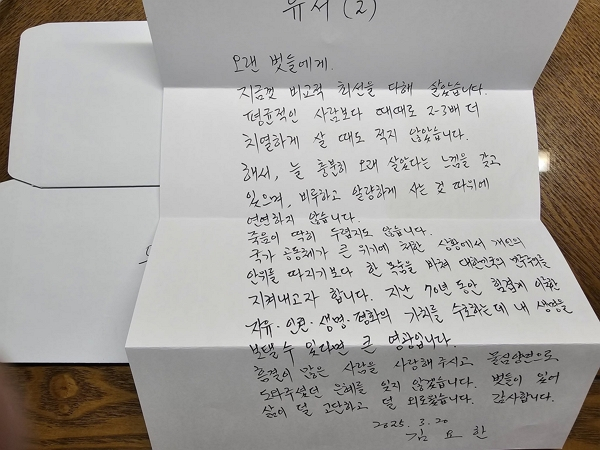 유서 (2)
오랜 벗들에게.
지금껏 비교적 최선을 다해 살았습니다.
평균적인 사람보다 때때로 2-3배 더
치열하게 살 때도 적지 않았습니다.
해서, 늘 충분히 오래 살았다는 느낌을 갖고
있으며, 비루하고 알량하게 사는 것 따위에
연연하지 않습니다.
죽음이 딱히 두렵지도 않습니다.
국가 공동체가 큰 위기에 처한 상황에서 개인의
안위를 따지기보다 한 목숨을 바쳐 대한민국의 민주주의를
지켜내고자 합니다. 지난 70년 동안 힘겹게 이룩한
자유·인권·생명·평화의 가치를 수호하는데 내 생명을
보탤 수 있다면 큰 영광입니다.
흠결이 많은 사람을 사랑해 주시고 물심양면으로
도와주셨던 은혜를 잊지 않겠습니다. 벗들이 있어
삶이 덜 고단하고 덜 외로웠습니다. 감사합니다.
2025. 3. 20
김 요 한